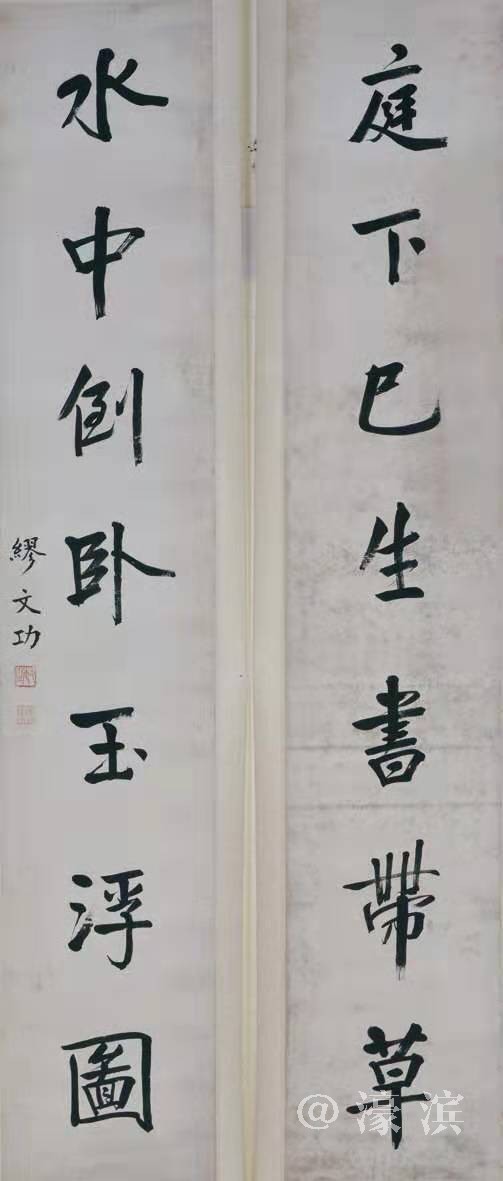 庭下已生書帶草
水中倒卧玉浮圖
繆文功
@濠滨